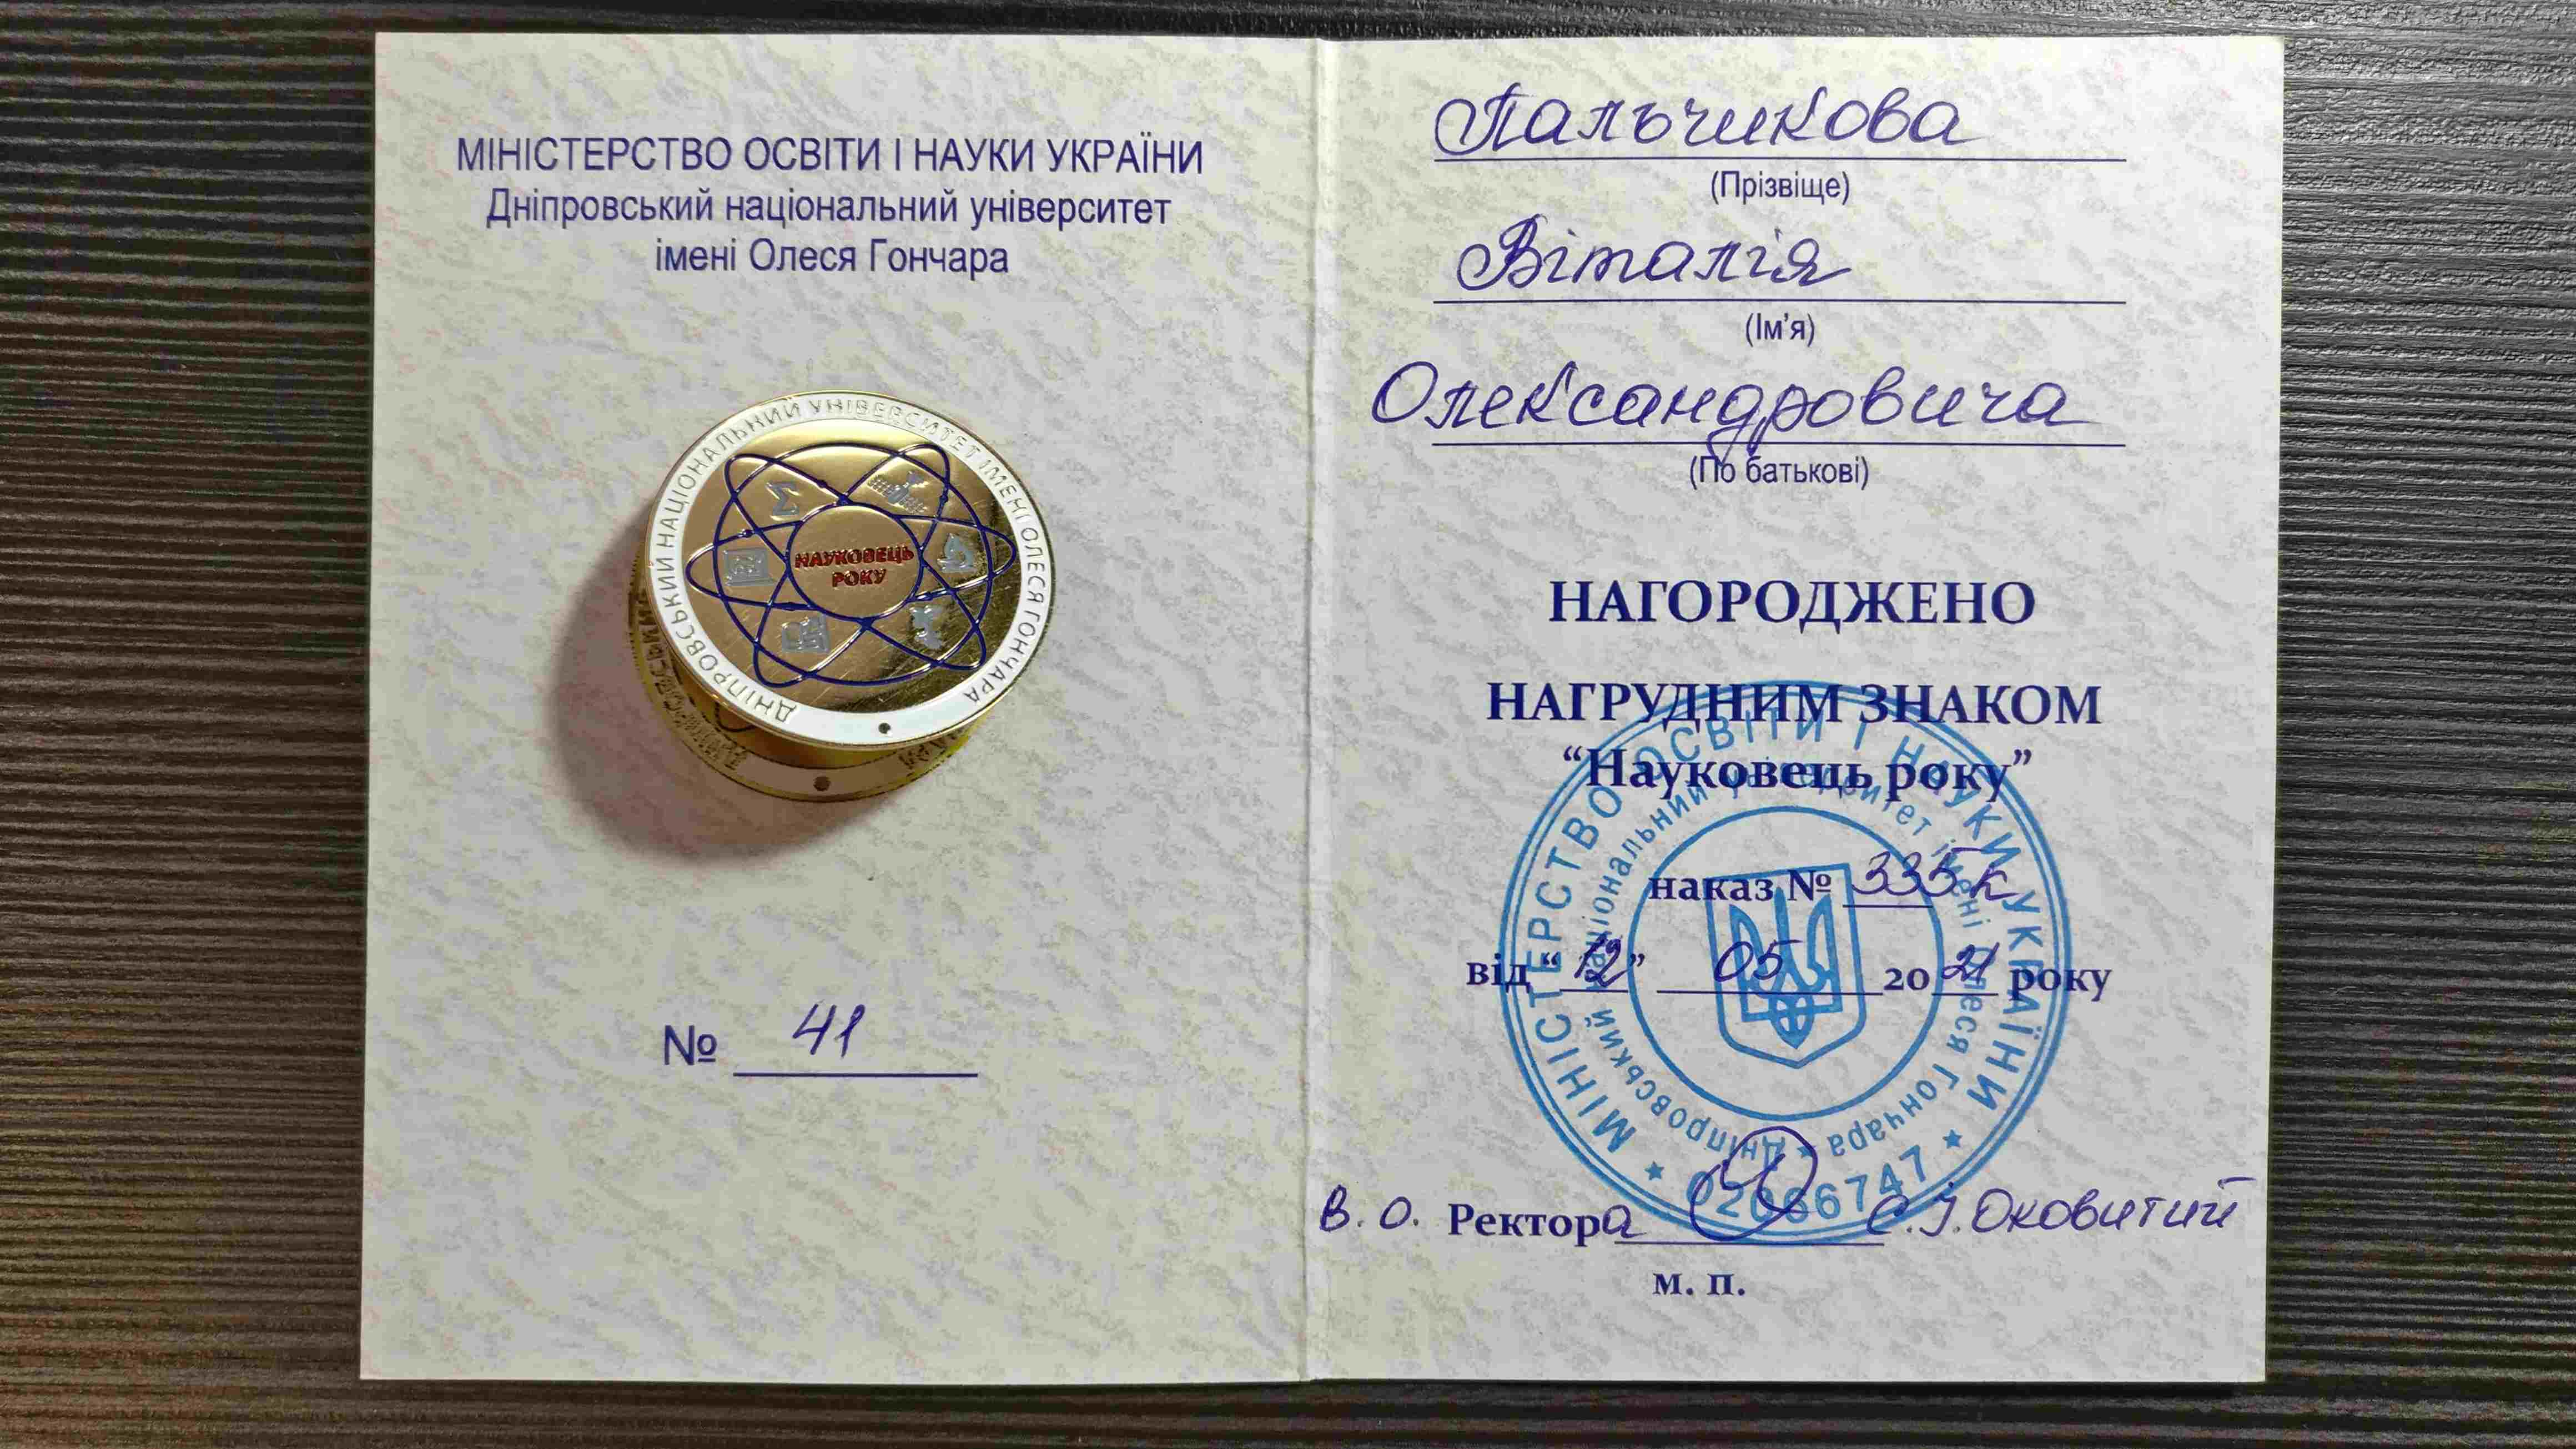 МІНІСТЕРСТВО ОСВІТИ І НАУКИ УКРАЇНИ
Дніпровський національний університет
імені Олеся Гончара
ДНІПРОВСЬКИЙ НАЦІОНАЛЬНИЙ УНІВЕРСИТЕТ ІМЕНІ ОЛЕСЯ ГОНЧАРА
НАУКОВЕЦЬ
РОКУ
№ 41
Пальчикова
(Прізвище)
Віталія
(Ім’я)
Олександровича
(По батькові)
НАГОРОДЖЕНО
НАГРУДНИМ ЗНАКОМ
“Науковець року”
наказ № 335к
від “12” 05 2021 року
В. о. Ректора С.І. Оковитий
м. п.
МІНІСТЕРСТВО ОСВІТИ І НАУКИ УКРАЇНИ
Дніпровський національний університет імені Олеся Гончара
02066747